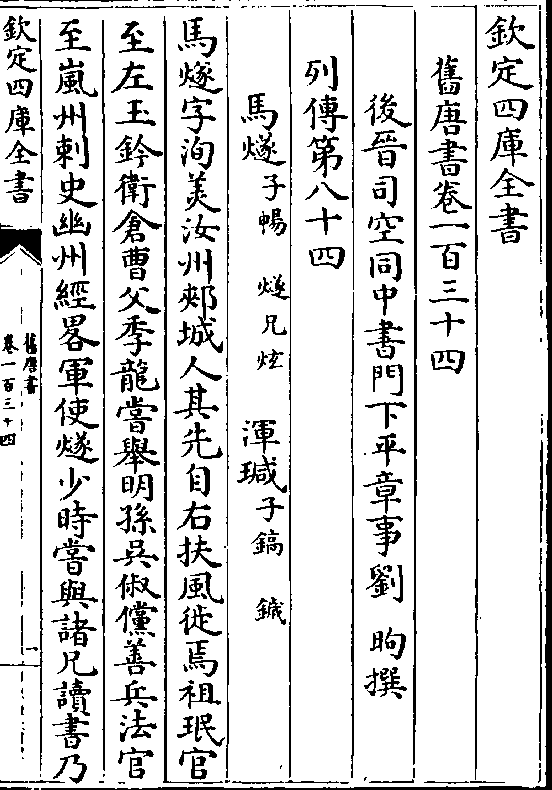 欽定四庫全書
舊唐書卷一百三十四
後晉司空同中書門下平章事劉昫撰
列傳第八十四
馬燧子暢 燧兄炫 渾瑊子鎬 鐬
馬燧字洵美汝州郟城人其先自右扶風徙焉祖珉官
至左玉鈐衛倉曹父季龍嘗舉明孫吳俶儻善兵法官
至嵐州刺史幽州經畧軍使燧少時嘗與諸兄讀書乃
欽定四庫全書
舊唐書
卷一百三十四
一